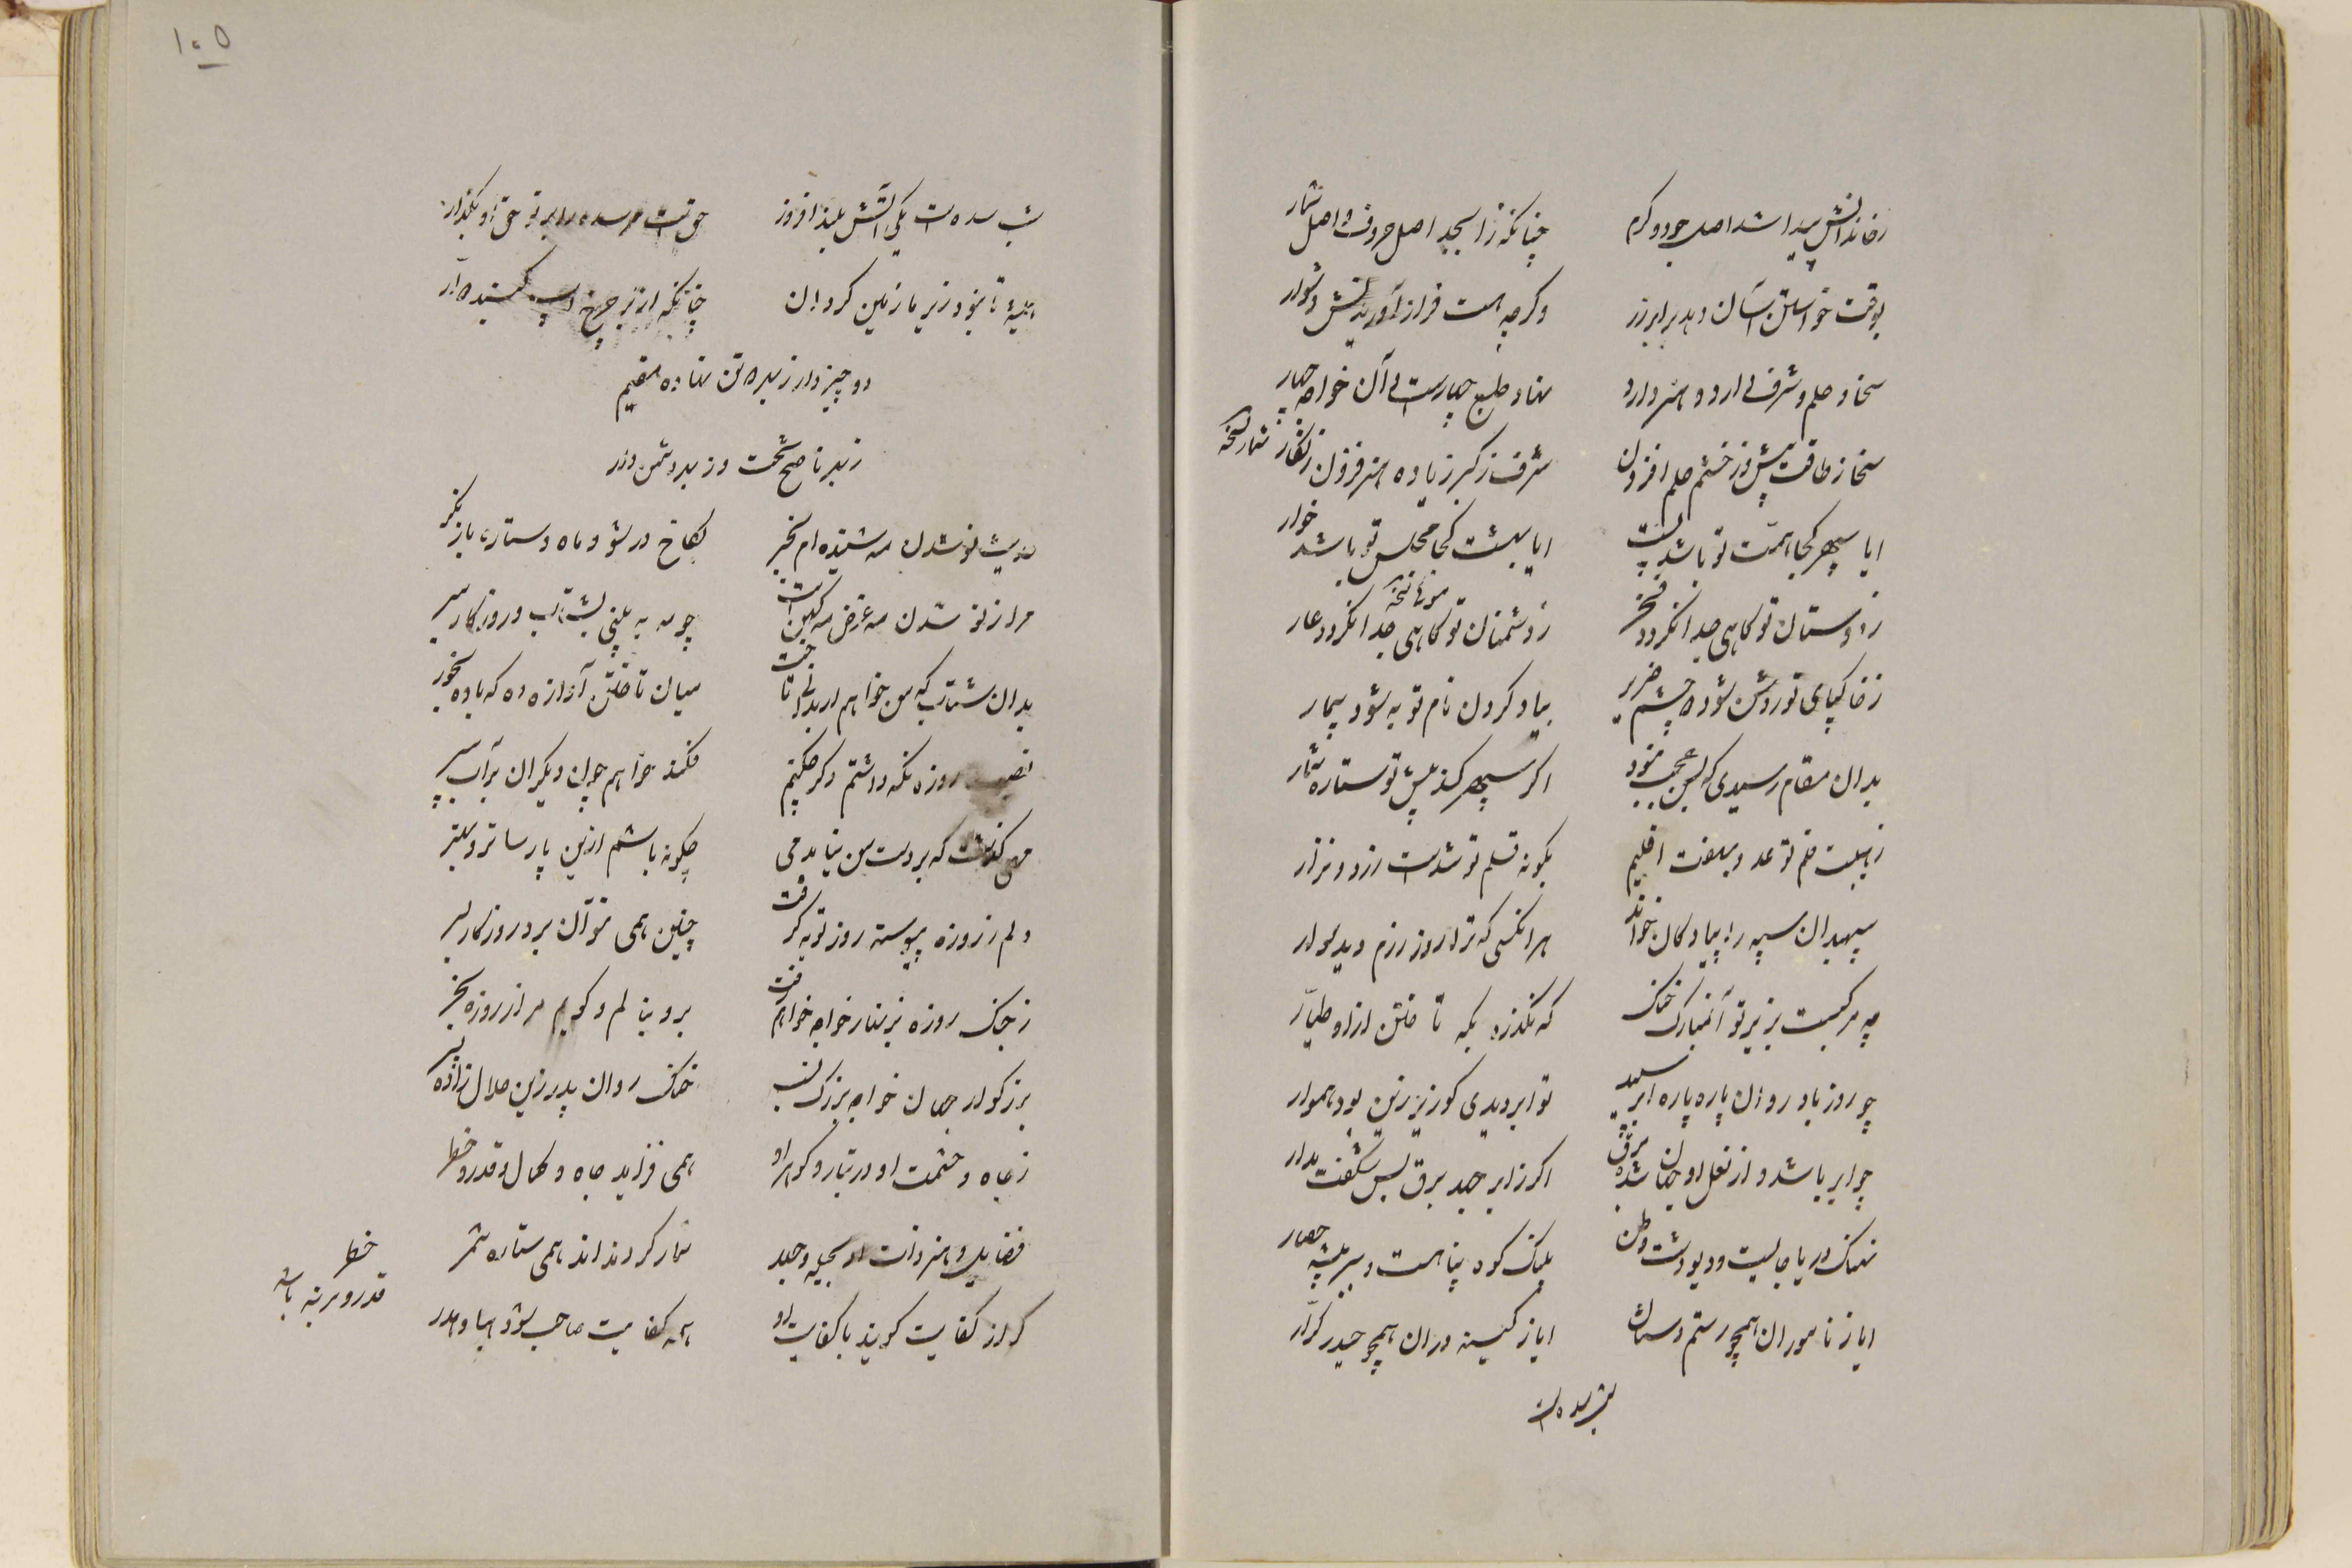 زخاندانش پیدا شد اصل جود و کرم چنانکه ز ابجد اصل حروف و اصل شمار
بوقت خواستن آسان دهد برابر زر وگرچه هست فراز آوریدنش دشوار
سخا و حلم و شرف دارد و هنر دارد نهاد و طبع چهارست و آن خواجه چهار
سخا ز طاقت بیش و ز خشم حلم افزون شرف ز کبر زیاده هنر فزون ز نقار شمار نسخه
ایا سپهر کجا همت تو باشد پست ایا بهشت کجا مجلس تو باشد خوار
ز دوستان تو گاهی جدا نگردد فخر ز دشمنان تو گاهی جدا نگردد عار
نسخه
ز خاکپای تو روشن شود دو چشم ضریر بیاد کردن نام تو به شود بیمار
بدان مقام رسیدی که بس عجب نبود اگر سپهر کند پیش تو ستاره نثار
ز هیبت قلم تو عدو بهفت اقلیم بگونه قلم تو شدست زرد و نزار
سپهبدان سپه را پیادگان خواند هر آنکسی که ترا روز رزم دید سوار
چه مرکبست بزیر تو آن مبارک خنگ که نگذرد بگه تاختن ازو طیّار
چو روز باد روان پاره پاره ابر سپید تو ابر دیدی کو زیر زین بود هموار
چو ابر باشد و از نعل او جهان شده برق اگر ز ابر جهد برق بس شگفت مدار
نهنگ دریا جایست و دیو دشت وطن پلنگ کوه پناهست و ببر بیشه حصار
ایا ز ناموران همچو رستم دستان ایا ز کینه وران همچو حیدر کرّار
شب سده است
۱۰۵
شب سده ست یکی آتش بلند افروز حق تست مر سده را بر تو حق او بگذار
همیشه تا بود زیر ما زمین گردان چنانکه از زبر چرخ اسپ کینده دار
دو چیز دار زبهر دو تن نهاده مقیم
ز بهر ناصح تخت و ز بهر دشمن دار
حدیث نو شدن مه شنیده ام بخبر بکاخ در شو و ماه و ستاره باز نگر
مرا ز نو شدن مه غرض مه کهن است چو مه به بینی بشتاب و روزگار مبر
بدان شتاب که من خواهم ار بدانی تاخت میان تاختن آوازه ده که باده بخور
نصیب روزه نگه داشتم دگر چکنم فکند خواهم چون دیگران بر آب سپر
مهی گذشت که بر دست من نیامد می چگونه باشم ازین پارساتر و بهتر
دلم ز روزه پیوسته روز توبه گرفت چنین همی نتوان برد روزگار بسر
ز جنگ روزه بزنهار خواجه خواهم رفت برو بنالم و گویم مرا ز روزه بخر
بزرگوار جهان خواجه بزرگ نسب خنک روان پدر زین حلال زاده پسر
ز جاه و حشمت او در تبار و گوهر او همی فزاید جاه و کمال و قدر و خطر
فضایل و هنر ذات او بحیله و جهد شمار کرد نداند همی ستاره شمر
گر از کفایت گویند با کفایت او همه کفایت صاحب شود هبا و هدر
خطر
قدر و مرتبه باشد